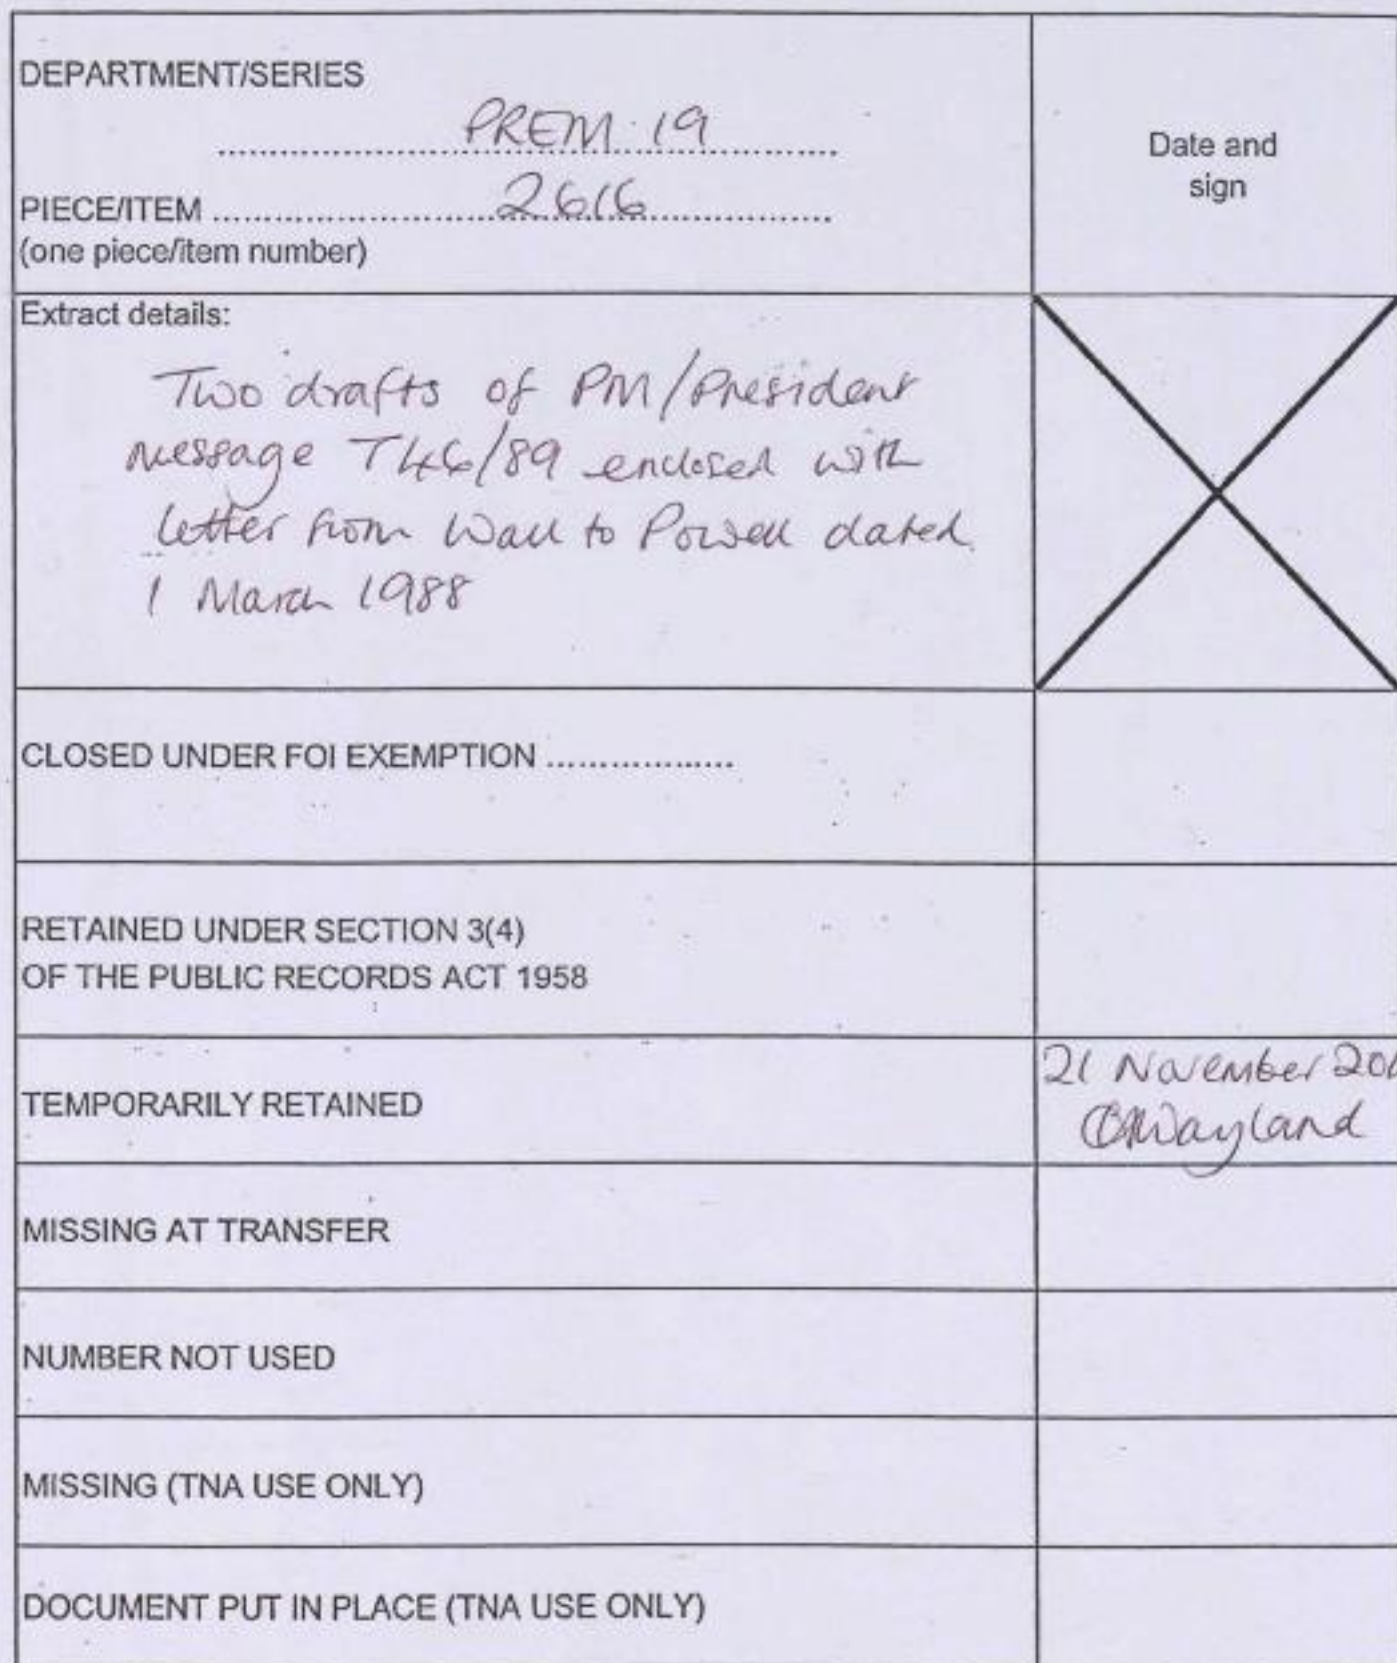 DEPARTMENT/SERIES
PREM 19
Date and
sign
PIECE/ITEM 2616
(one piece/item number)
Extract details:
Two drafts of PM/President
message T46/89 enclosed with
letter from Wall to Powell dated
1 March 1988
CLOSED UNDER FOI EXEMPTION ..................
RETAINED UNDER SECTION 3(4)
OF THE PUBLIC RECORDS ACT 1958
TEMPORARILY RETAINED
21 November
Wayland
MISSING AT TRANSFER
NUMBER NOT USED
MISSING (TNA USE ONLY)
DOCUMENT PUT IN PLACE (TNA USE ONLY)